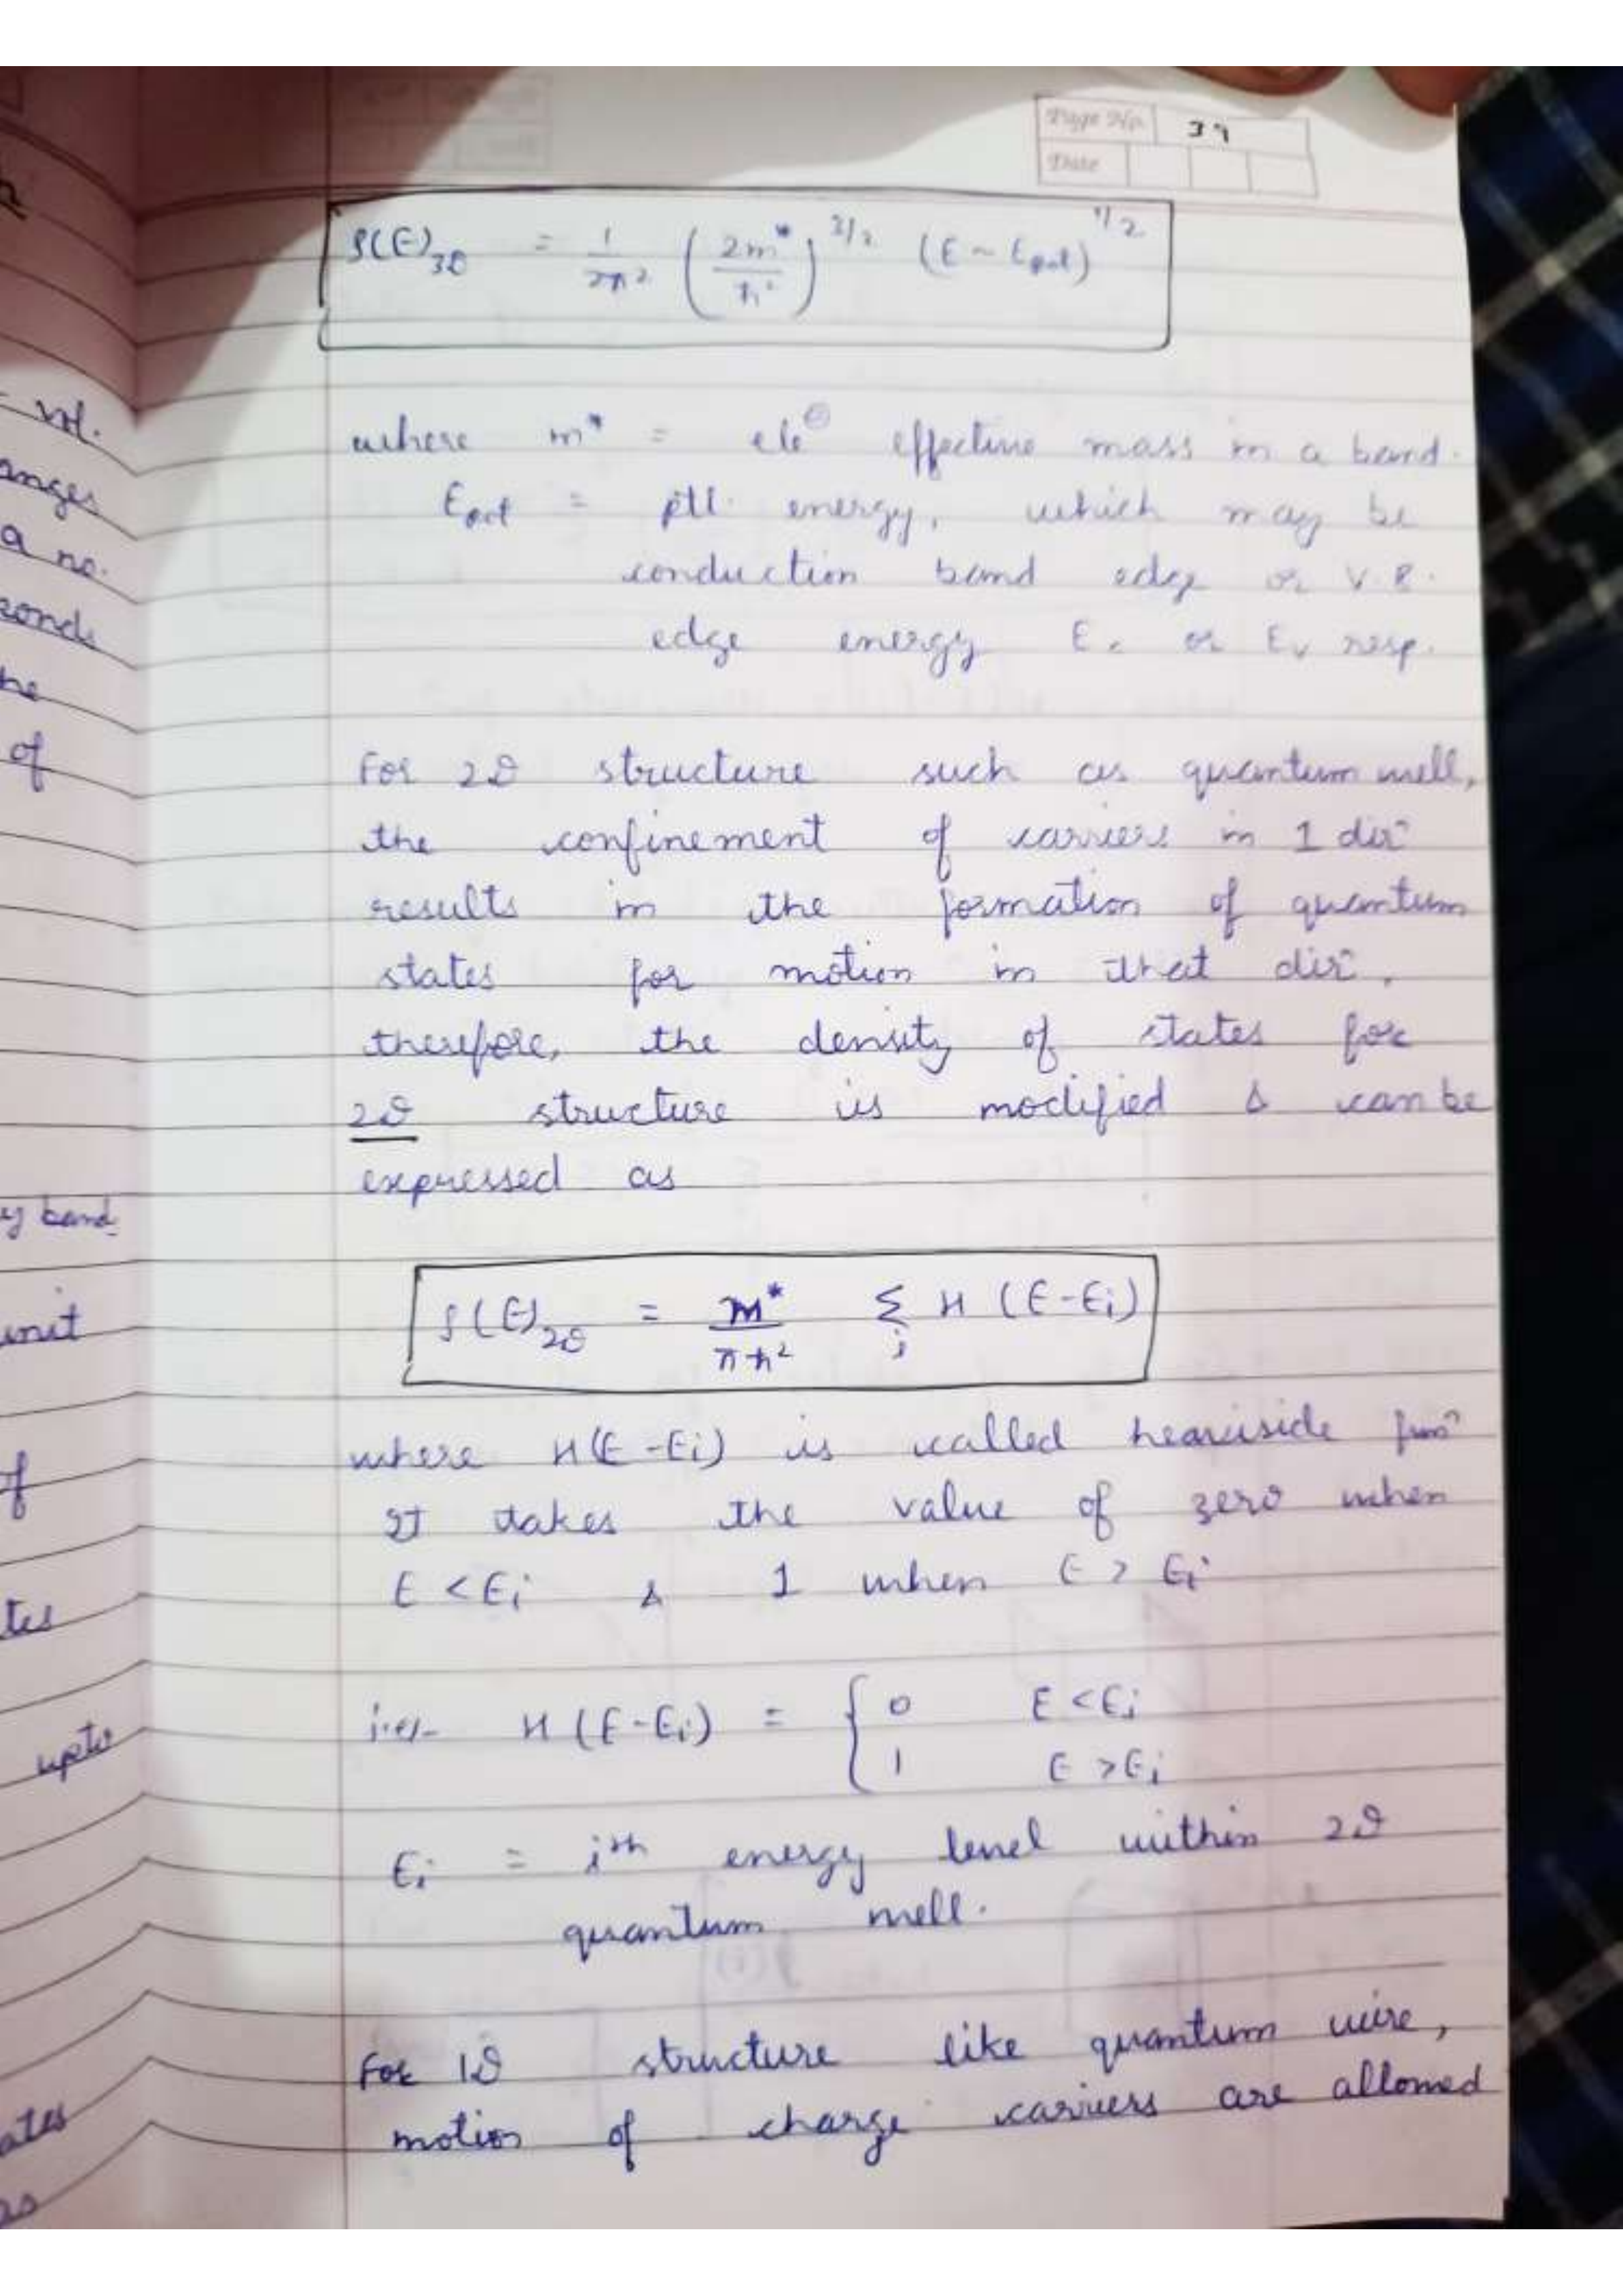 Page No. 39
Date
ρ(E)3D = 1/2π² (2m*/ħ²)^3/2 (E - Epot)^1/2
where m* = ele⊖ effective mass in a band.
Epot = ptl. energy, which may be
conduction band edge or V.B.
edge energy Ec or Ev resp.
For 2D structure such as quantum well,
the confinement of carriers in 1 dirⁿ
results in the formation of quantum
states for motion in that dirⁿ.
therefore, the density of states for
2D structure is modified & can be
expressed as
ρ(E)2D = m*/πħ² Σi H (E-Ei)
where H(E-Ei) is called heaviside funⁿ
It takes the value of zero when
E < Ei & 1 when E > Ei
i.e.- H (E-Ei) = { 0 E < Ei
1 E > Ei
Ei = ith energy level within 2D
quantum well.
For 1D structure like quantum wire,
motion of charge carriers are allowed
anges
a no.
of
y band
unit
of
tes
upto
ates
as